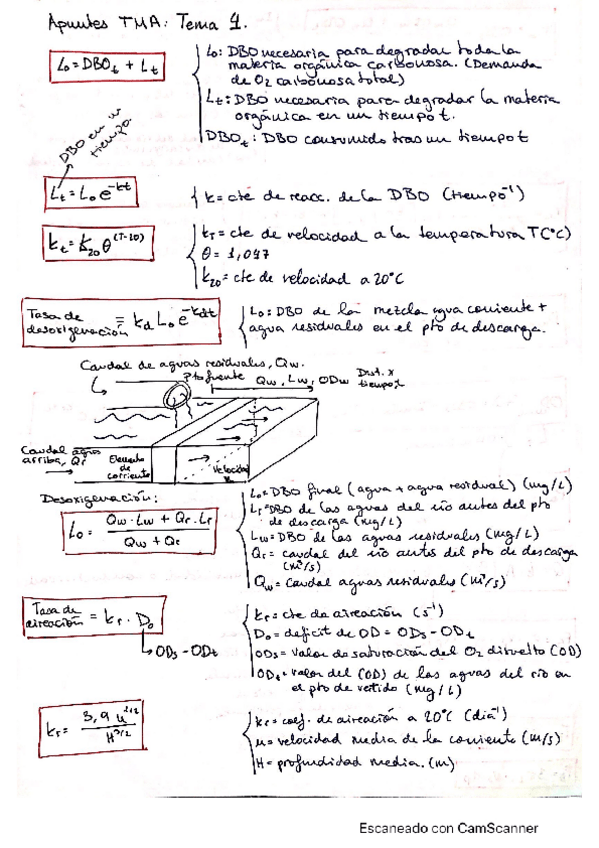 Apuntes TMA: Tema 1.
L₀ = DBO_t + L_t
L₀: DBO necesaria para degradar toda la
materia orgánica carbonosa. (Demanda
de O₂ carbonosa total)
L_t: DBO necesaria para degradar la materia
orgánica en un tiempo t.
DBO_t: DBO consumido tras un tiempo t
DBO en un
tiempo
L_t = L₀ e^{-kt}
k = cte de reacc. de la DBO (tiempo⁻¹)
k_t = K₂₀ θ^{(T-20)}
k_T = cte de velocidad a la temperatura T(°C)
θ = 1,047
k₂₀ = cte de velocidad a 20°C
Tasa de
desoxigenación ≡ k_d L₀ e^{-k_d t}
L₀: DBO de la mezcla agua corriente +
agua residuales en el pto de descarga.
Caudal de aguas residuales, Qw.
Pto fuente
Qw, Lw, ODw
Dist. x
tiempo t
Caudal aguas
arriba, Qr
Elemento
de
corriente
Velocidad
Desoxigenación:
L₀ = (Qw · Lw + Qr · Lr) / (Qw + Qr)
L₀ = DBO final (agua + agua residual) (mg/L)
Lr = DBO de las aguas del río antes del pto
de descarga (mg/L)
Lw = DBO de las aguas residuales (mg/L)
Qr = caudal del río antes del pto de descarga
(m³/s)
Qw = caudal aguas residuales (m³/s)
Tasa de
aireación = kr · D₀
ODs - ODt
kr = cte de aireación (s⁻¹)
D₀ = deficit de OD = ODs - ODt
ODs = valor de saturación del O₂ disuelto (OD)
ODt = valor del (OD) de las aguas del río en
el pto de vertido (mg/L)
kr = 3,9 u^{1/2} / H^{3/2}
kr = coef. de aireación a 20°C (día⁻¹)
u = velocidad media de la corriente (m/s)
H = profundidad media. (m)
Escaneado con CamScanner